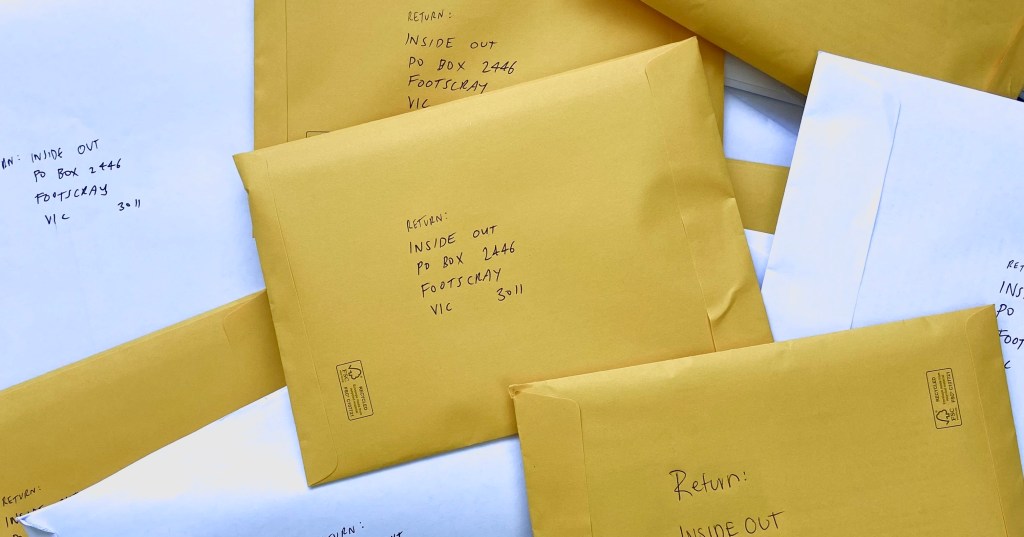 RETURN:
INSIDE OUT
PO BOX 2446
FOOTSCRAY
VIC
RN: INSIDE OUT
PO BOX 2446
FOOTSCRAY
VIC 3011
RETURN:
INSIDE OUT
PO BOX 2446
FOOTSCRAY
VIC 3011
RET
INS
PO
FOOT
C
RECYCLED
FSC
RECYCLED
FSC
Return:
INSIDE OUT
RETURN:
URN: